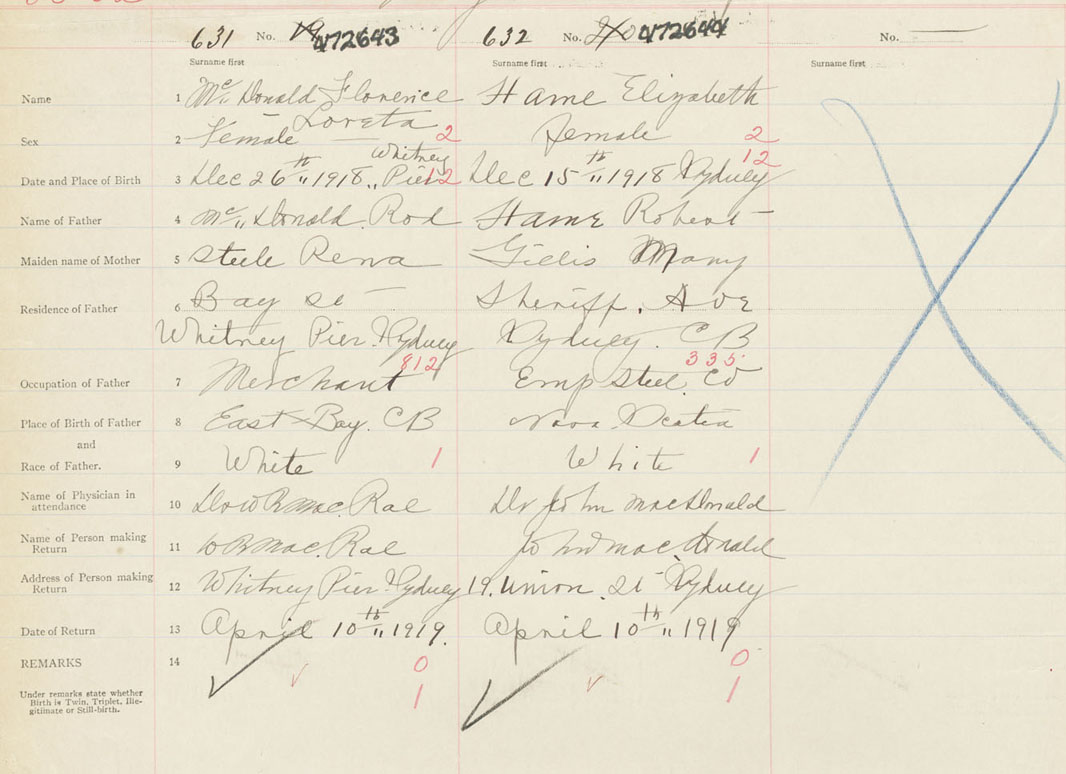 631 No. 19 472643 632 No. 20 472644 No.
Surname first Surname first Surname first
Name 1 Mc Donald Florence Hame Elizabeth
Loreta
Sex 2 Female 2 female 2
Whitney 12
Date and Place of Birth 3 Dec 26th 1918 Pier 12 Dec 15th 1918 Sydney
Name of Father 4 Mc Donald Rod Hame Robert
Maiden name of Mother 5 Steele Rena Gillis Mary
Residence of Father 6 Bay St Sheriff Ave
Whitney Pier Sydney Sydney. CB
812 335
Occupation of Father 7 Merchant Emp Steel Co
Place of Birth of Father 8 East Bay. CB Nova Scotia
and
Race of Father. 9 White 1 White 1
Name of Physician in
attendance 10 Dr W R Mac Rae Dr John MacDonald
Name of Person making
Return 11 W R Mac Rae John MacDonald
Address of Person making
Return 12 Whitney Pier Sydney 19. Union St Sydney
Date of Return 13 April 10th 1919. April 10th 1919
REMARKS 14 0 0
Under remarks state whether
Birth is Twin, Triplet, Ille- 1 1
gitimate or Still-birth.